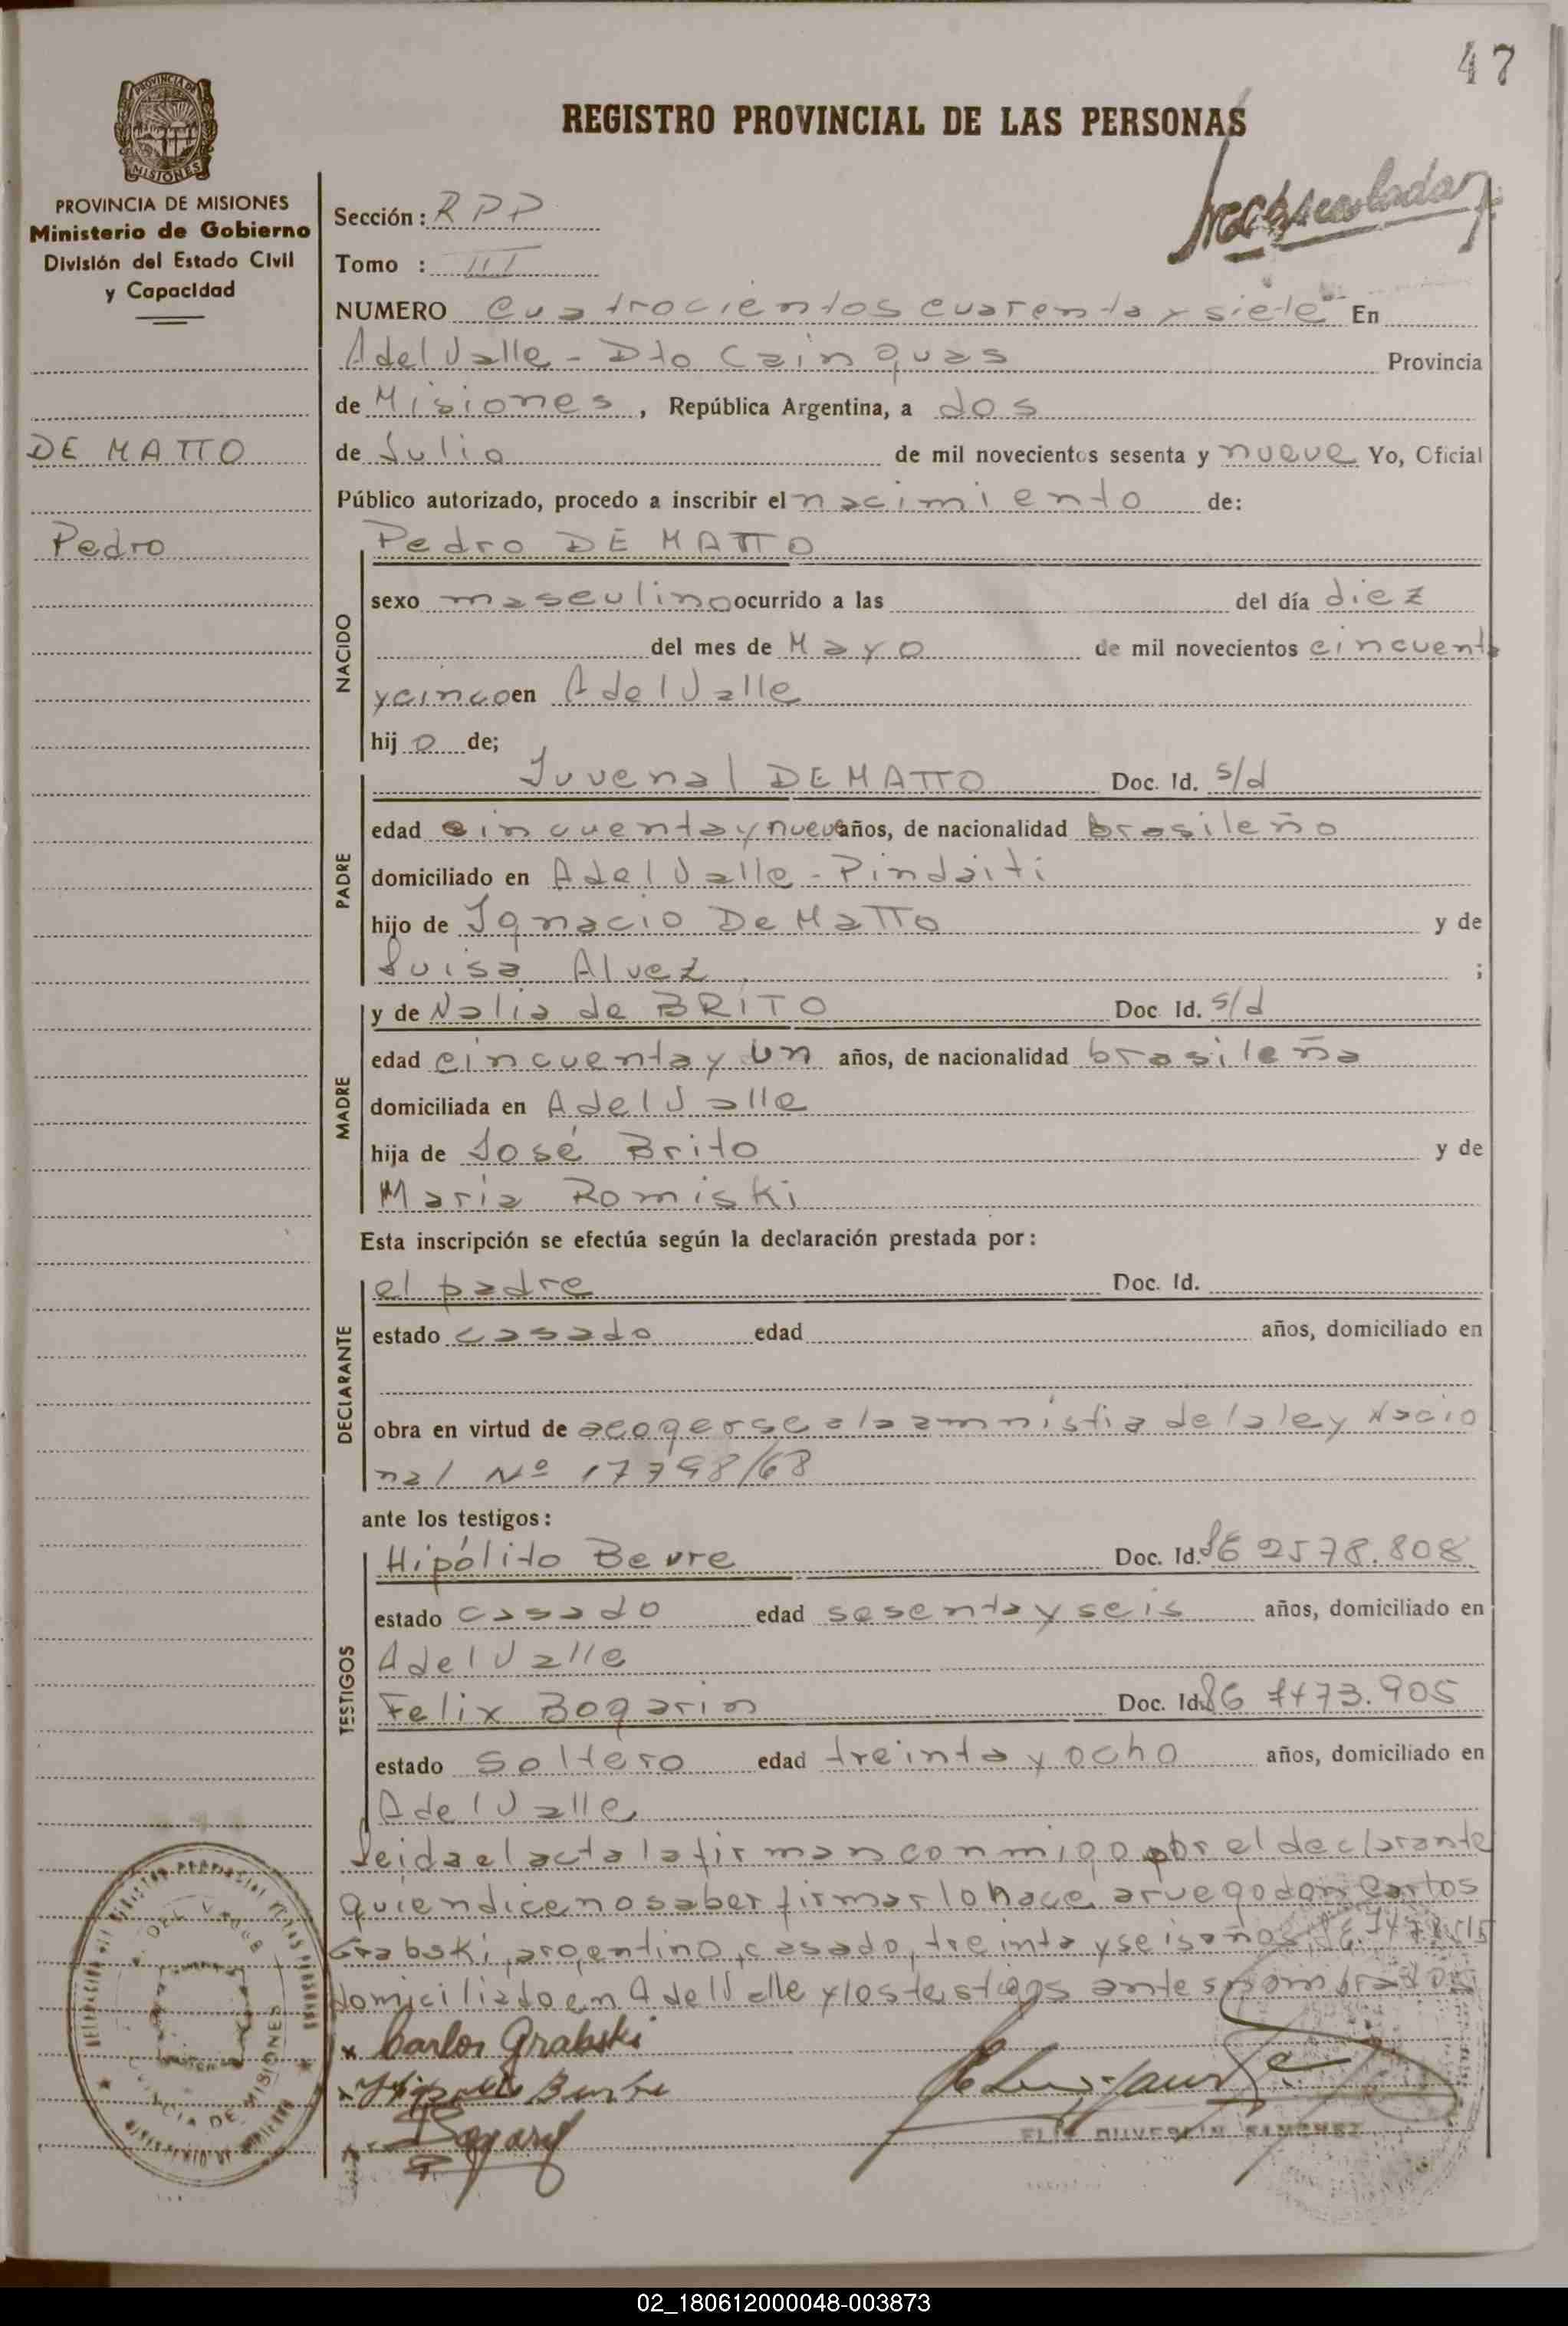 47
REGISTRO PROVINCIAL DE LAS PERSONAS
PROVINCIA DE MISIONES
Ministerio de Gobierno
División del Estado Civil
y Capacidad
DE MATTO
Pedro
Sección: RPP
Tomo : III
NUMERO Cuatrocientos cuarenta y siete En
A del Valle - Dto Cainguas Provincia
de Misiones, República Argentina, a dos
de Julio de mil novecientos sesenta y nueve Yo, Oficial
Público autorizado, procedo a inscribir el nacimiento de:
NACIDO
Pedro DE MATTO
sexo masculino ocurrido a las del día diez
del mes de Mayo de mil novecientos cincuenta
y cinco en A del Valle
hijo de;
PADRE
Juvenal DE MATTO Doc. Id. s/d
edad cincuenta y nueve años, de nacionalidad brasileño
domiciliado en A del Valle - Pindaiti
hijo de Ignacio De Matto y de
Luisa Alvez ;
MADRE
y de Nalia de BRITO Doc. Id. s/d
edad cincuenta y un años, de nacionalidad brasileña
domiciliada en A del Valle
hija de José Brito y de
María Romiski
Esta inscripción se efectúa según la declaración prestada por:
DECLARANTE
el padre Doc. Id.
estado casado edad años, domiciliado en
obra en virtud de acogerse a la amnistia de la ley Nacio
nal Nº 17798/68
ante los testigos:
TESTIGOS
Hipólito Bevre Doc. Id. 2578.808
estado casado edad sesenta y seis años, domiciliado en
A del Valle
Felix Bogarin Doc. Id. 7473.905
estado soltero edad treinta y ocho años, domiciliado en
A del Valle
Leida el acta la firman conmigo por el declarante
quien dice no saber firmar lo hace a ruego don Carlos
Grabski, argentino, casado, treinta y seis años,
domiciliado en A del Valle y los testigos antes nombrados
x Carlos Grabski
02_180612000048-003873